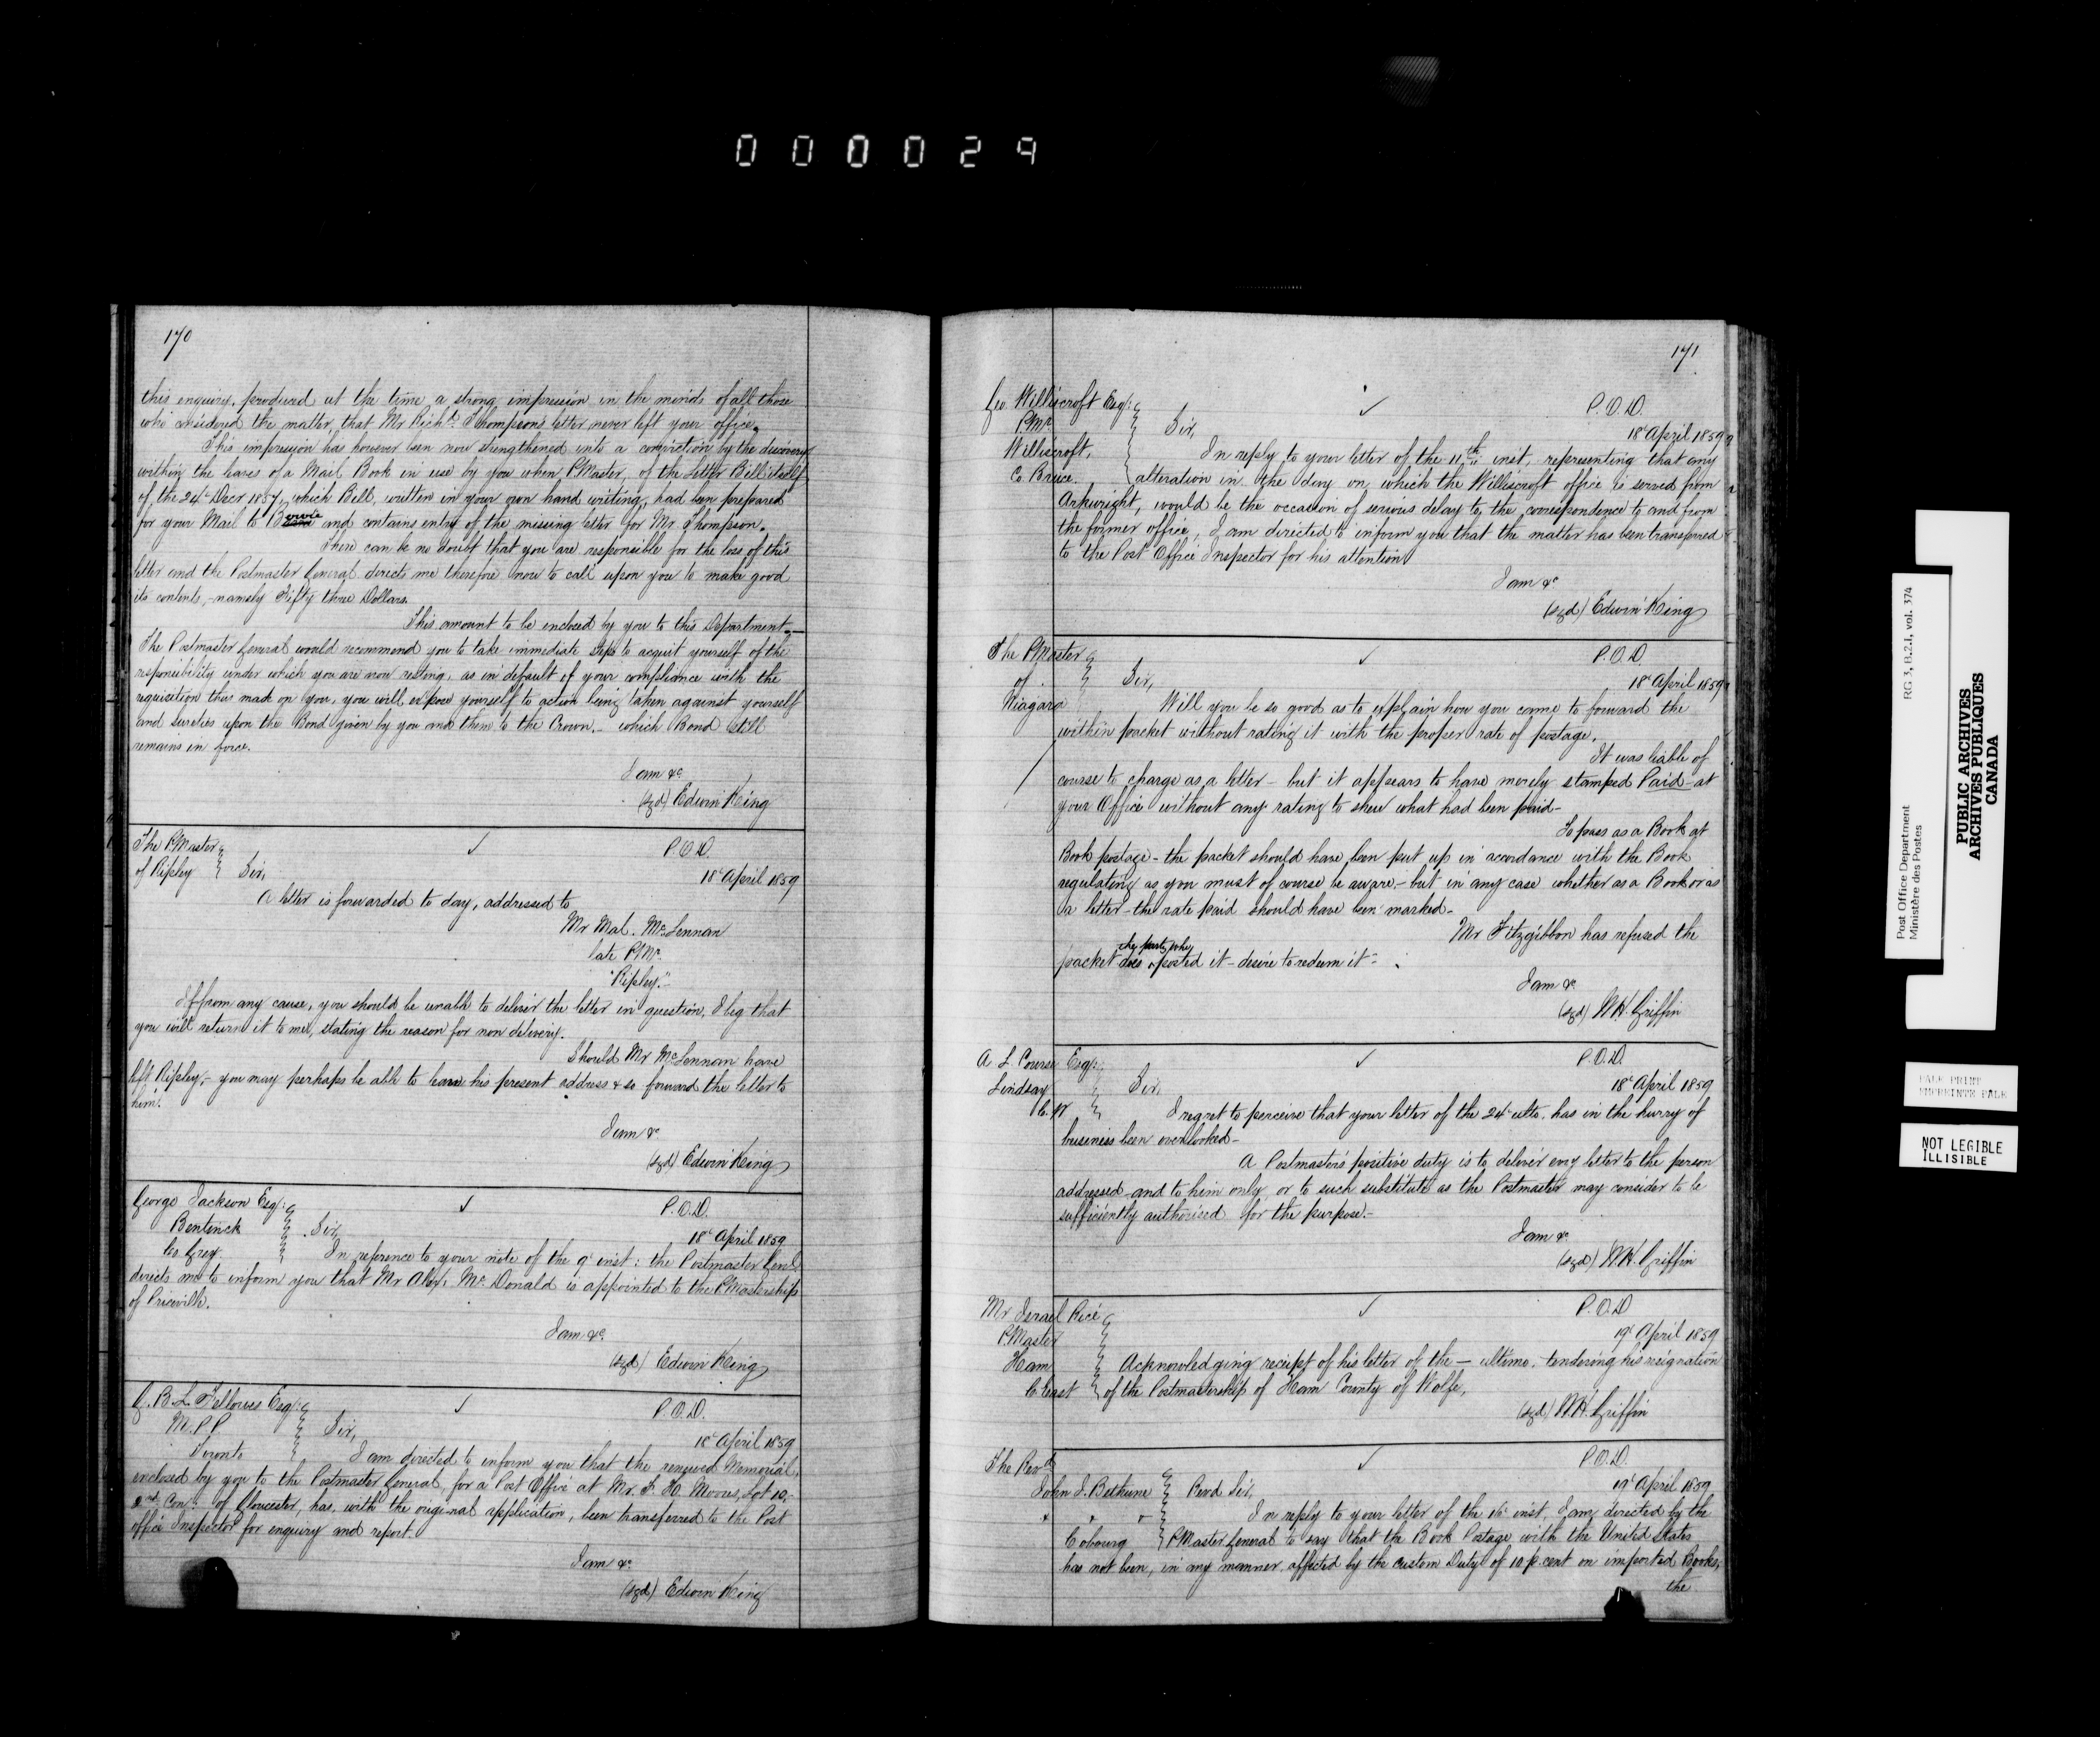 000029
170
this enquiry, produced at the time a strong impression in the minds of all those
who considered the matter, that Mr Richd. Thompson's letter never left your office.
This impression has however been now strengthened into a conviction by the discovery
within the leaves of a Mail Book in use by you when PMaster, of the Letter Bill itself
of the 24th Decr 1857, which Bill, written in your own hand writing, had been prepared
for your Mail to and contains entry of the missing letter for Mr Thompson.
There can be no doubt that you are responsible for the loss of this
letter and the Postmaster General directs me therefore now to call upon you to make good
its contents, - namely Fifty three Dollars.
This amount to be enclosed by you to this Department.
The Postmaster General would recommend you to take immediate steps to acquit yourself of the
responsibility under which you are now resting, as in default of your compliance with the
requisition thus made on you, you will expose yourself to action being taken against yourself
and sureties upon the Bond given by you and them to the Crown, - which Bond still
remains in force.
I am &c
(sgd) Edwin King
The PMaster
of Ripley
P.O.D.
18th April 1859
Sir,
A letter is forwarded to day, addressed to
Mr Mal. McLennan
late PMr.
"Ripley."
If from any cause, you should be unable to deliver the letter in question, I beg that
you will return it to me, stating the reason for non delivery.
Should Mr McLennan have
left Ripley, - you may perhaps be able to learn his present address & so forward the letter to
him.
I am &c
(sgd) Edwin King
George Jackson Esqr.
Bentinck
Co Grey.
P.O.D.
18th April 1859
Sir,
In reference to your note of the 9th inst: the Postmaster Genl.
directs me to inform you that Mr Alex. McDonald is appointed to the PMastership
of Priceville.
I am &c.
(sgd) Edwin King
G. B. L. Fellowes Esqr.
M.P.P.
Toronto
P.O.D.
18th April 1859
Sir,
I am directed to inform you that the renewed Memorial,
enclosed by you to the Postmaster General, for a Post Office at Mr. F. H. Moores, Lot 10,
2nd Con: of Gloucester, has, with the original application, been transferred to the Post
office Inspector for enquiry and report.
I am &c
(sgd) Edwin King
171
Geo Williscroft Esqr.
PMr
Williscroft,
Co. Bruce.
P.O.D.
18th April 1859
Sir,
In reply to your letter of the 11th inst, representing that any
alteration in the day on which the Williscroft office is served from
Arkwright, would be the occasion of serious delay to the correspondence to and from
the former office, I am directed to inform you that the matter has been transferred
to the Post Office Inspector for his attention
I am &c
(sgd) Edwin King
The PMaster
of
Niagara
P.O.D.
18th April 1859
Sir,
Will you be so good as to explain how you came to forward the
within packet without rating it with the proper rate of postage.
It was liable of
course to charge as a letter - but it appears to have merely stamped Paid - at
your Office without any rating to shew what had been paid -
To pass as a Book at
Book postage - the packet should have been put up in accordance with the Book
regulating as you must of course be aware - but in any case whether as a Book or as
a letter - the rate paid should have been marked -
Mr Fitzgibbon has refused the
packet does the party who posted it - desire to redeem it -
I am &c
(sgd) W.H. Griffin
A L Course Esqr.
Lindsay
C.W
P.O.D.
18th April 1859
Sir,
I regret to perceive that your letter of the 24th ulto. has in the hurry of
business been overlooked -
A Postmaster's positive duty is to deliver every letter to the person
addressed and to him only, or to such substitute as the Postmaster may consider to be
sufficiently authorised for the purpose. -
I am &c
(sgd) W.H. Griffin
Mr Israel Rice
PMaster
Ham
C East
P.O.D
19th April 1859
Acknowledging receipt of his letter of the — ultimo, tendering his resignation
of the Postmastership of Ham County of Wolfe,
(sgd) W.H. Griffin
The Revd.
John J. Bethune
Cobourg
P.O.D.
19th April 1859
Revd Sir,
In reply to your letter of the 16th inst, I am directed by the
PMaster General to say that the Book Postage with the United States
has not been, in any manner affected by the custom Duty of 10 p. cent on imported Books,
the
Post Office Department
Ministère des Postes
RG 3, B.2.1, vol. 374
PUBLIC ARCHIVES
ARCHIVES PUBLIQUES
CANADA
PALE PRINT
EMPREINTE PALE
NOT LEGIBLE
ILLISIBLE